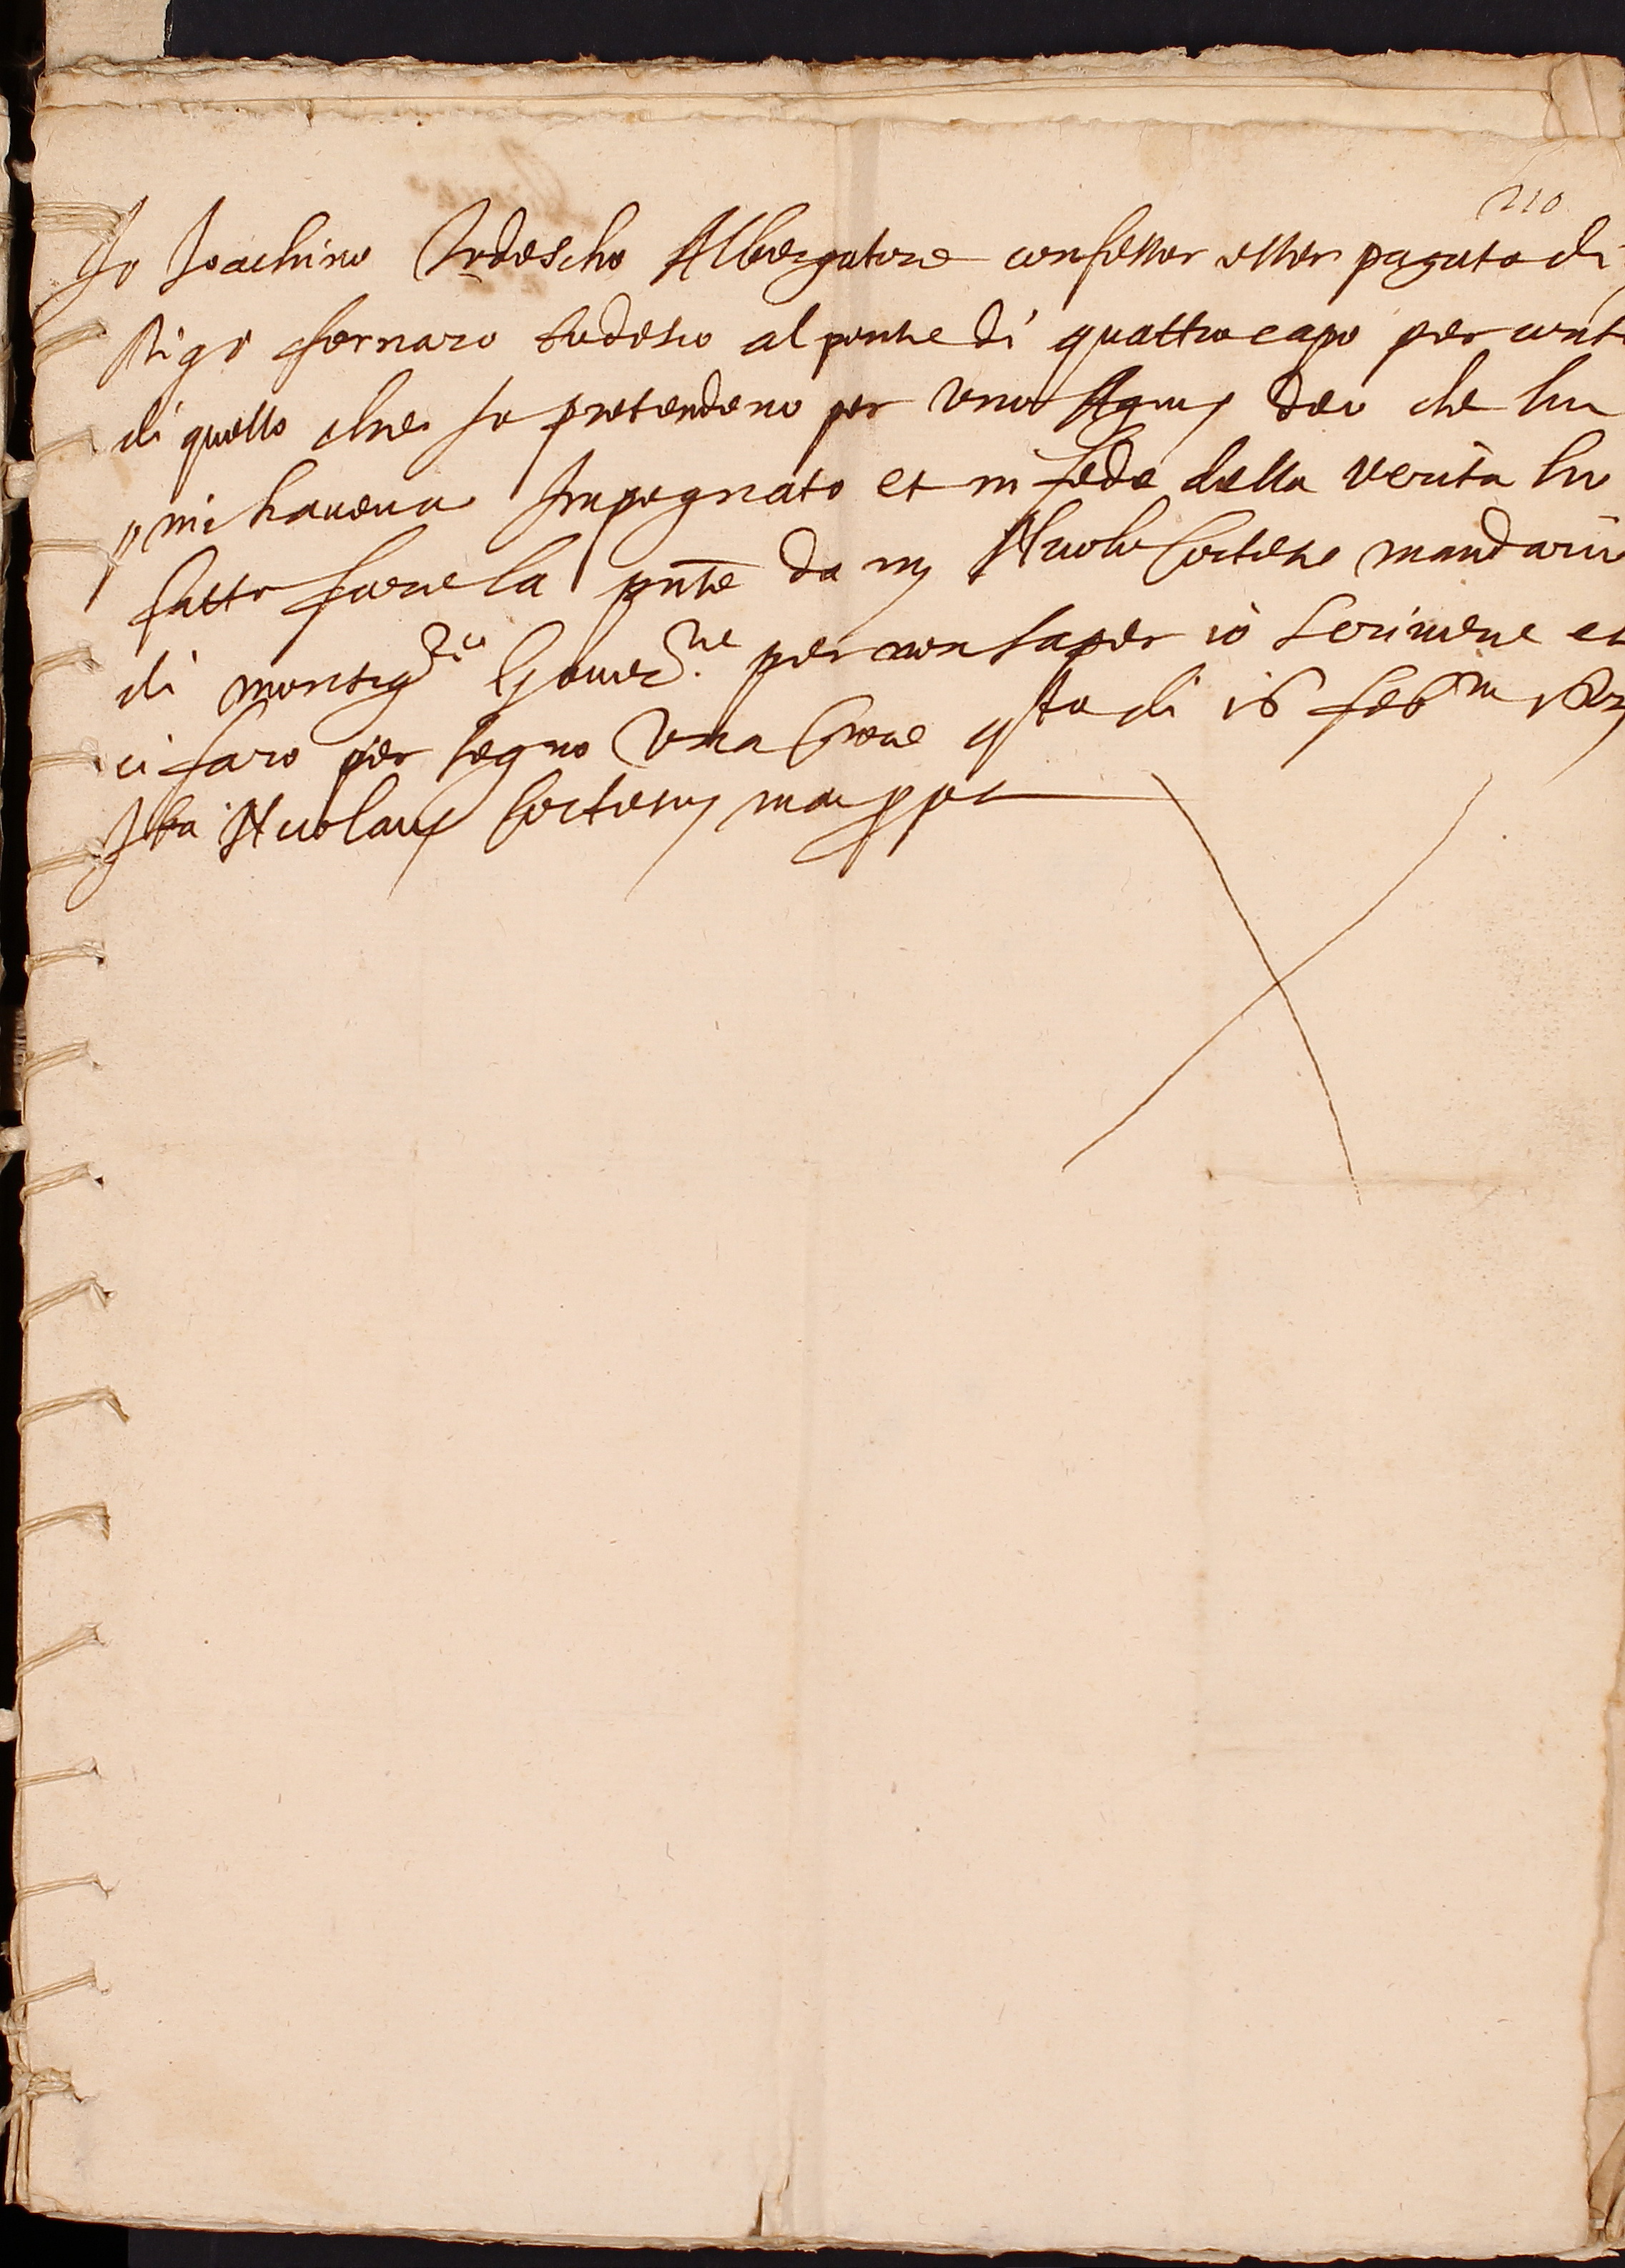 210
Io Joachino Todescho Albergatore confesser esser pagato di
Rigo fornaro todesco al ponte di quattro capo per cont
di quello che Io pretendevo per uno Agnus Deo che lui
mi haveva Impegnato et in fede della verita ho
fatto fare la pnte da m Nicolo Cortese mandario
di monsigre Governe per non saper io scrivere et
ci faro per segno una Croce qsto di 16 febro
Ita Nicolaus Cortesius man ppa